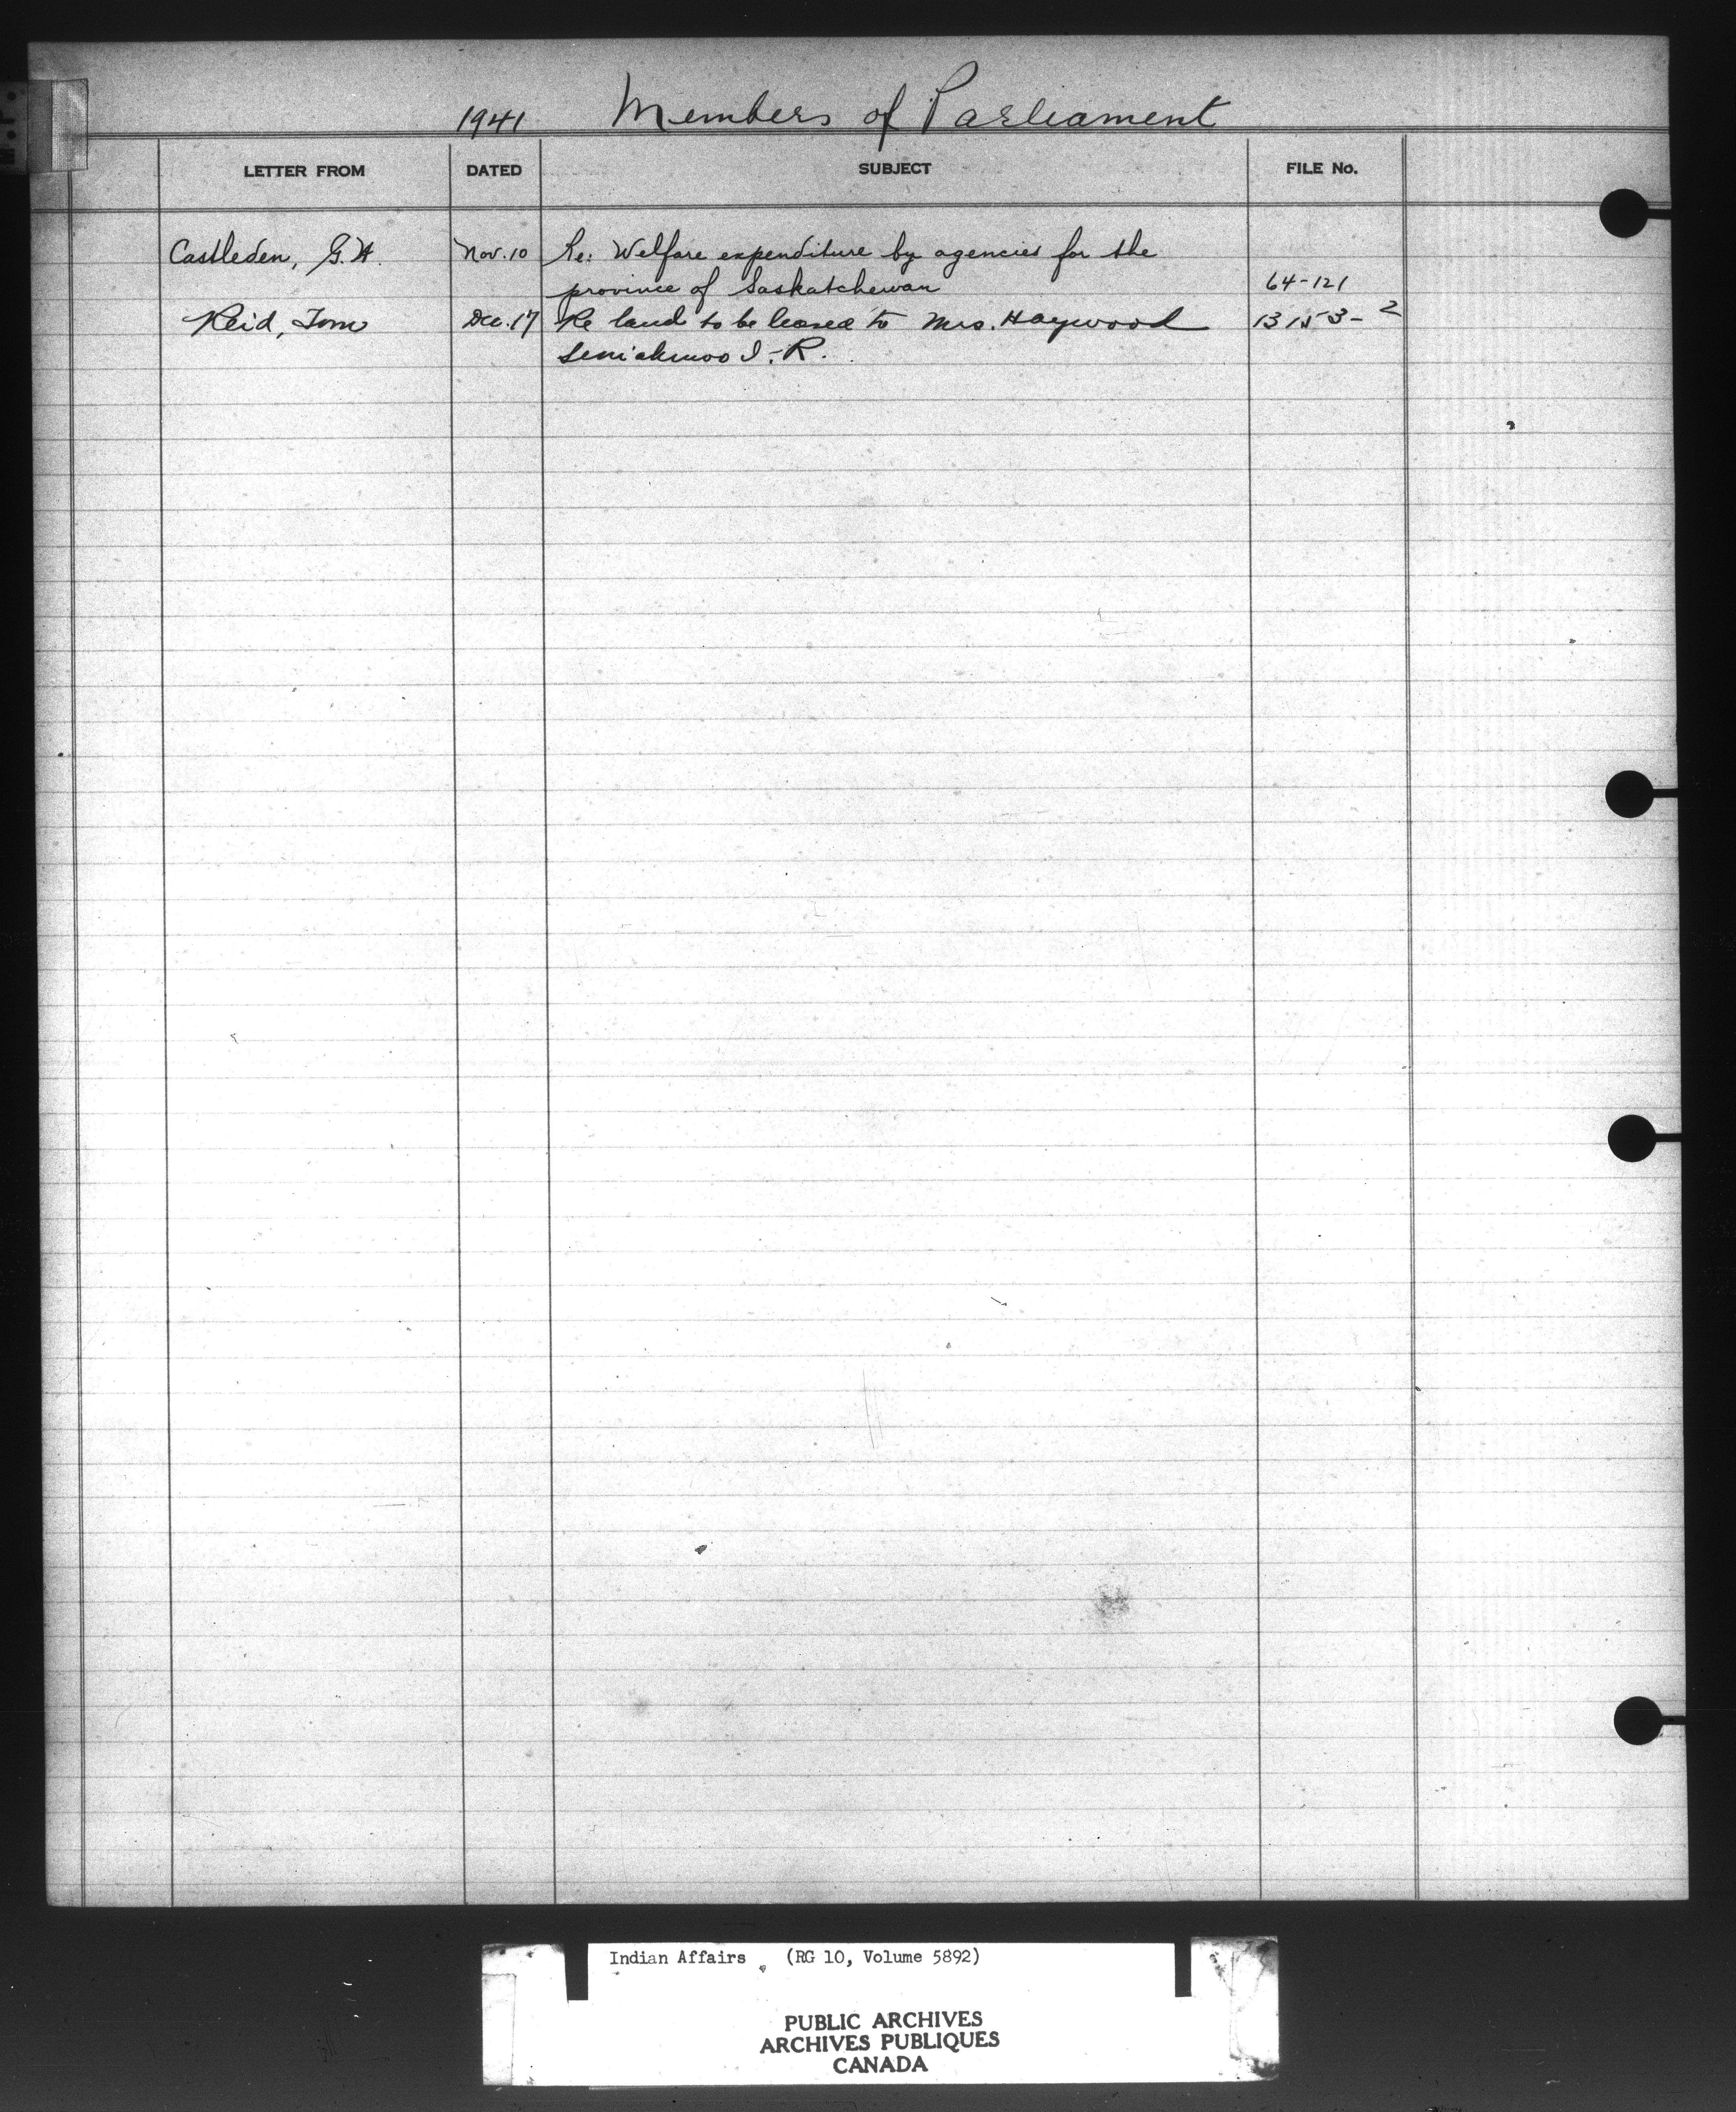 M.P.
1941 Members of Parliament
LETTER FROM DATED SUBJECT FILE No.
Castleden, G.H. Nov. 10 Re: Welfare expenditure by agencies for the
province of Saskatchewan 64-121
Reid, Tom Dec. 17 Re land to be leased to Mrs. Haywood 13153-2
Semiahmoo I.R.
Indian Affairs (RG 10, Volume 5892)
PUBLIC ARCHIVES
ARCHIVES PUBLIQUES
CANADA